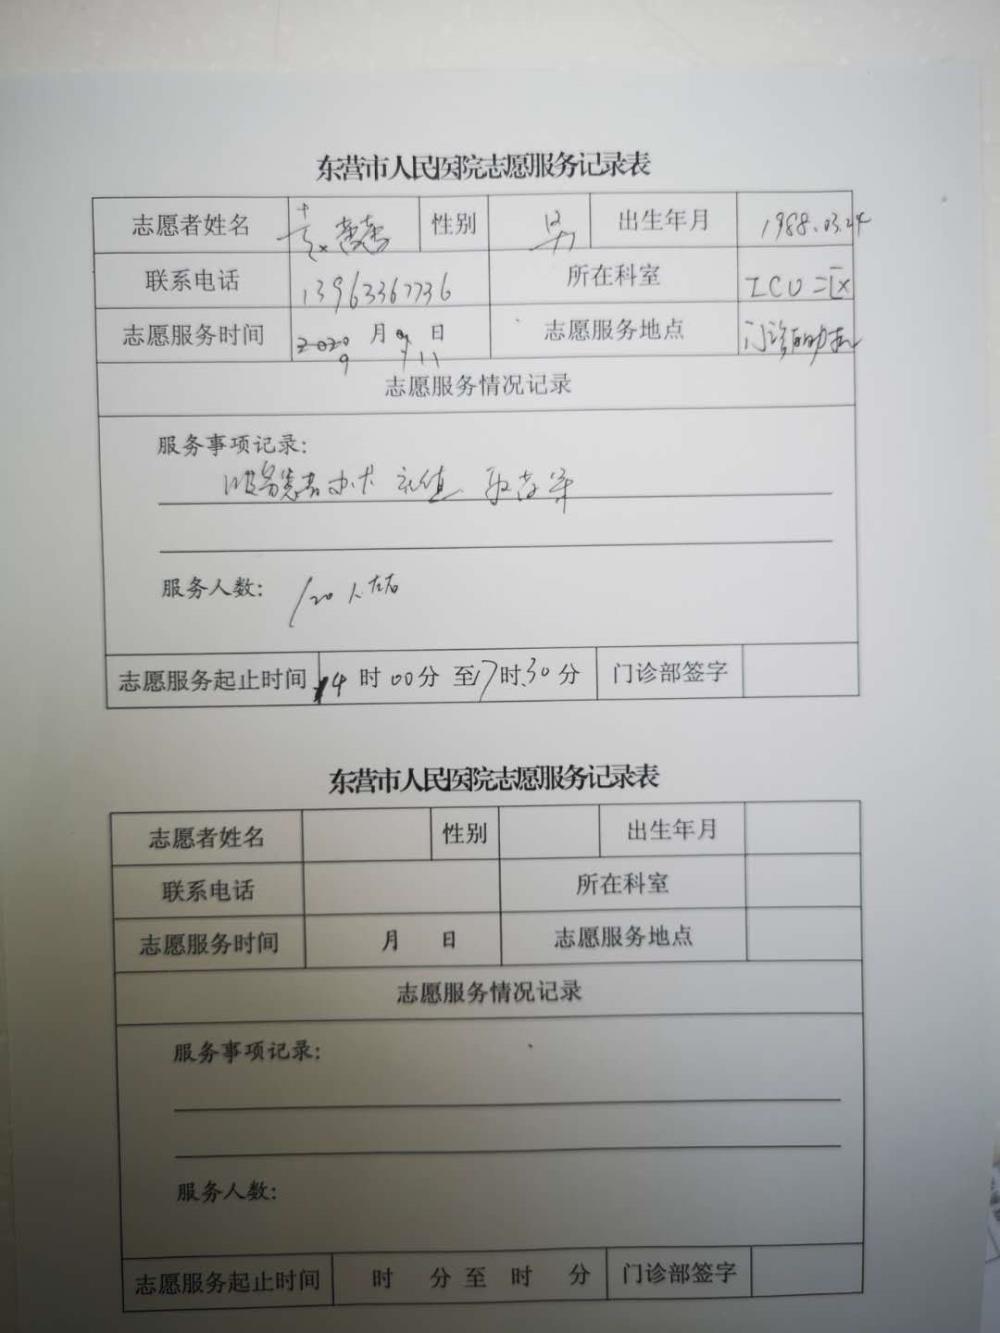 东营市人民医院志愿服务记录表
志愿者姓名 性别 男 出生年月 1988.03.24
联系电话 13963367736 所在科室 ICU二区
志愿服务时间 2020 9月11日 志愿服务地点 门诊自助机
志愿服务情况记录
服务事项记录：
服务患者办卡 充值
服务人数： 120人左右
志愿服务起止时间 14时00分至17时30分 门诊部签字
东营市人民医院志愿服务记录表
志愿者姓名 性别 出生年月
联系电话 所在科室
志愿服务时间 月 日 志愿服务地点
志愿服务情况记录
服务事项记录：
服务人数：
志愿服务起止时间 时 分至 时 分 门诊部签字